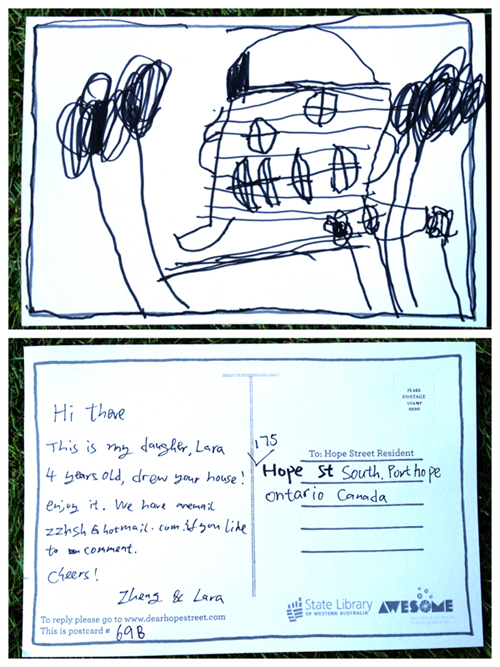 Hi there
This is my daugher, Lara
4 years old, drew your house!
enjoy it. We have anemail
zzhsh@hotmail.com.if you like
to comment.
Cheers!
Zheng & Lara
To reply please go to www.dearhopestreet.com
This is postcard # 69B
PLACE
POSTAGE
STAMP
HERE
175
To: Hope Street Resident
Hope St South, Port hope
Ontario Canada
State Library
OF WESTERN AUSTRALIA
AWESOME